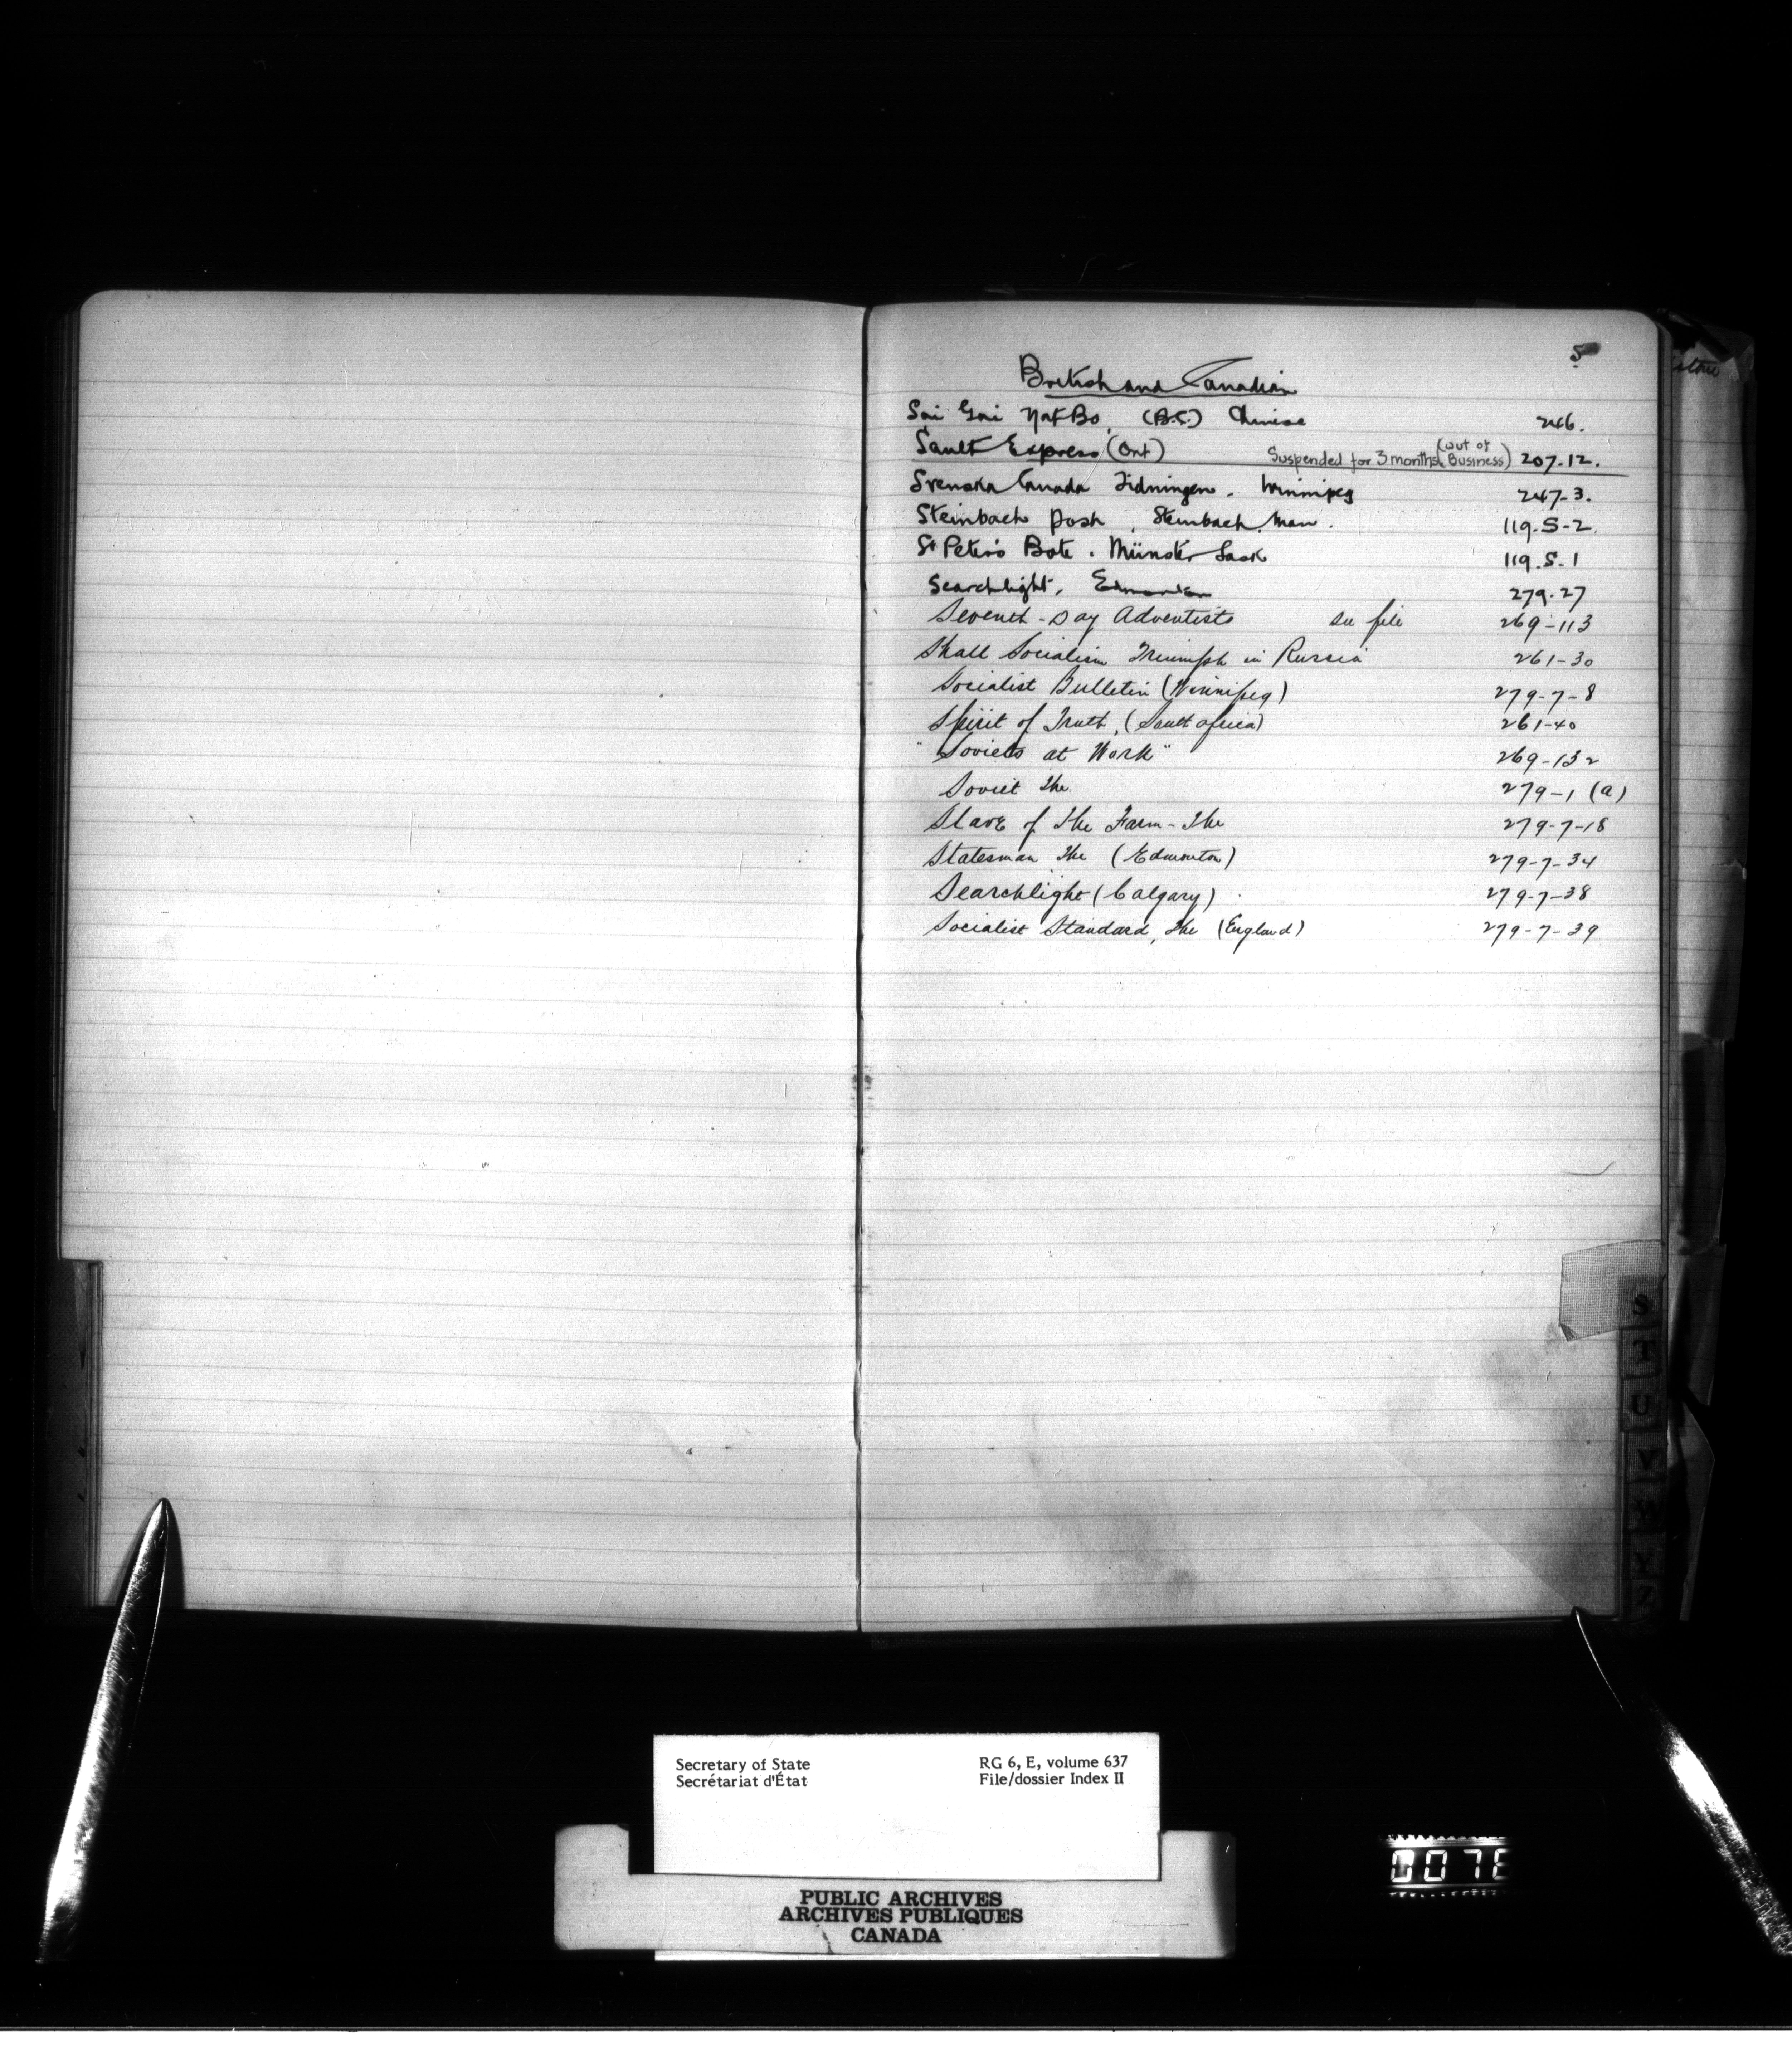 S
British and Canadian
Sai Gai Yat Bo, (B.C.) Chinese 246.
Sault Express (Ont) Suspended for 3 months (out of Business) 207-12.
Svenska Canada Tidningen - Winnipeg 247-3.
Steinbach Post, Steinbach, Man. 119.S-2.
St Peter's Bote. Münster Sask 119.S.1
Searchlight, Edmonton 279-27
Seventh-Day Adventists see file 269-113
Shall Socialism Triumph in Russia 261-30
Socialist Bulletin (Winnipeg) 279-7-8
Spirit of Truth, (South Africa) 261-40
"Soviets at Work" 269-132
Soviet The 279-1 (a)
Slave of the Farm - The 279-7-18
Statesman The (Edmonton) 279-7-34
Searchlight (Calgary) 279-7-38
Socialist Standard, The (England) 279-7-39
S
T
U
V
W
Y
Z
Secretary of State RG 6, E, volume 637
Secrétariat d'État File/dossier Index II
PUBLIC ARCHIVES
ARCHIVES PUBLIQUES
CANADA